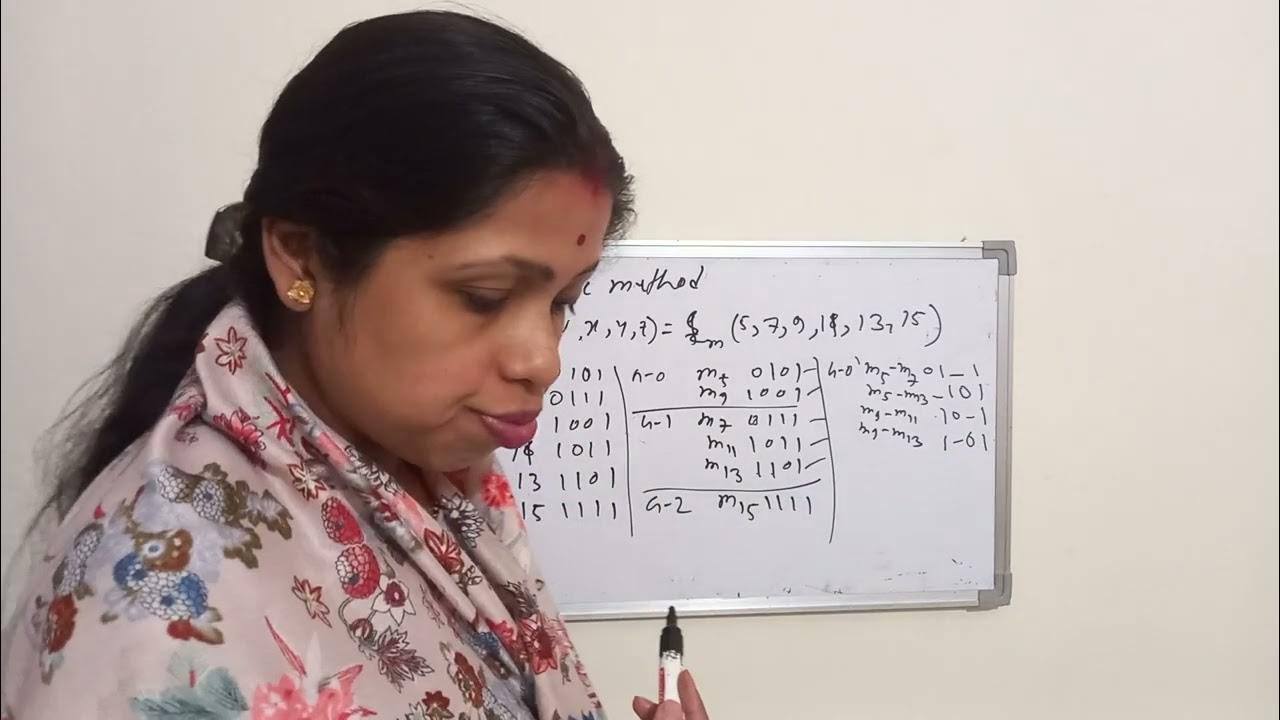 method
, x, y, z) = ∑m (5, 7, 9, 11, 13, 15)
101 G-0 m5 0101 - G-0 m5-m7 01_1
0111 m9 1001 - m5-m13 -101
1001 G-1 m7 0111 - m9-m11 10-1
11 1011 m11 1011 - m9-m13 1-01
13 1101 m13 1101 -
15 1111 G-2 m15 1111